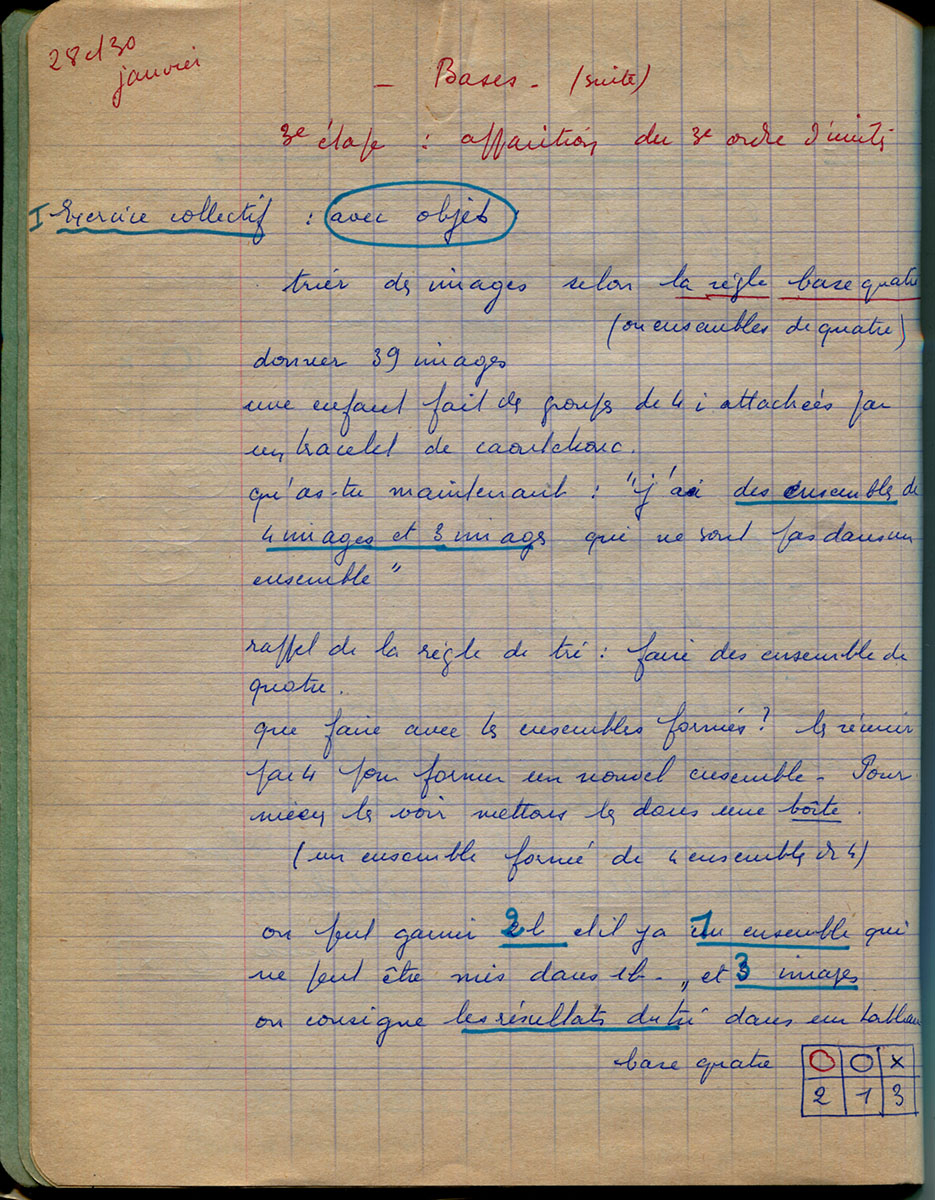 28 et 30
janvier
- Bases - (suite)
3e étape : apparition du 3e ordre d'unités
I Exercice collectif : avec objets
trier des images selon la règle base quatre
(ou ensembles de quatre)
donner 39 images
une enfant fait des groupes de 4 i attachées par
un bracelet de caoutchouc.
qu'as-tu maintenant : "j'ai des ensembles de
4 images et 3 images qui ne sont pas dans un
ensemble"
rappel de la règle de tri : faire des ensemble de
quatre.
que faire avec les ensembles formés ? les réunir
par 4 pour former un nouvel ensemble - Pour
mieux les voir mettons les dans une boîte.
(un ensemble formé de 4 ensembles de 4)
on peut garnir 2 b et il y a 1 ensemble qui
ne peut être mis dans 1 b - " et 3 images
on consigne les résultats du tri dans un tableau
base quatre O O x
2 1 3